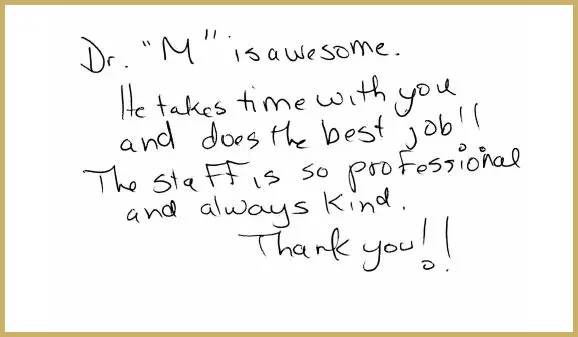 Dr. "M" is awesome.
He takes time with you
and does the best job!!
The staff is so professional
and always kind.
Thank you!!